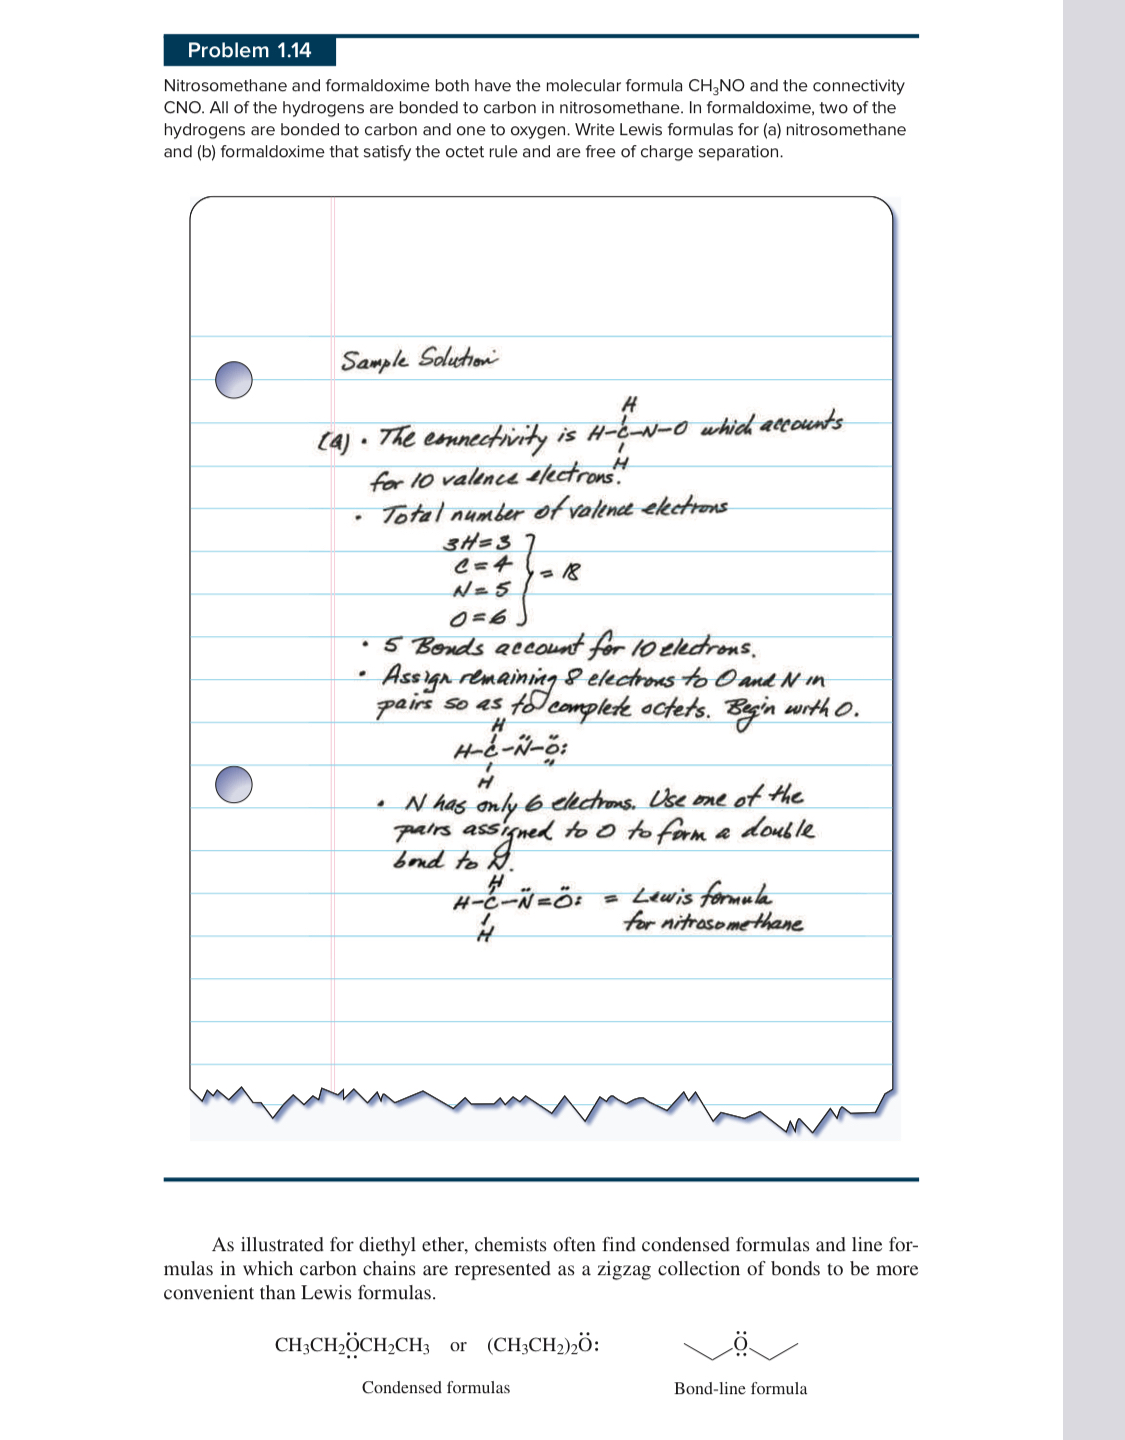 Problem 1.14
Nitrosomethane and formaldoxime both have the molecular formula CH₃NO and the connectivity
CNO. All of the hydrogens are bonded to carbon in nitrosomethane. In formaldoxime, two of the
hydrogens are bonded to carbon and one to oxygen. Write Lewis formulas for (a) nitrosomethane
and (b) formaldoxime that satisfy the octet rule and are free of charge separation.
Sample Solution
H
(a) • The connectivity is H-C-N-O which accounts
H
for 10 valence electrons.
• Total number of valence electrons
3H=3
C=4
= 18
N=5
O=6
• 5 Bonds account for 10 electrons.
• Assign remaining 8 electrons to O and N in
pairs so as to complete octets. Begin with O.
H
H-C-N̈-Ö̤:
H
• N has only 6 electrons. Use one of the
pairs assigned to O to form a double
bond to N.
H
H-C-N̈=Ö: = Lewis formula
H
for nitrosomethane
As illustrated for diethyl ether, chemists often find condensed formulas and line for-
mulas in which carbon chains are represented as a zigzag collection of bonds to be more
convenient than Lewis formulas.
CH₃CH₂Ö̤CH₂CH₃ or (CH₃CH₂)₂Ö: Ö̤
Condensed formulas Bond-line formula